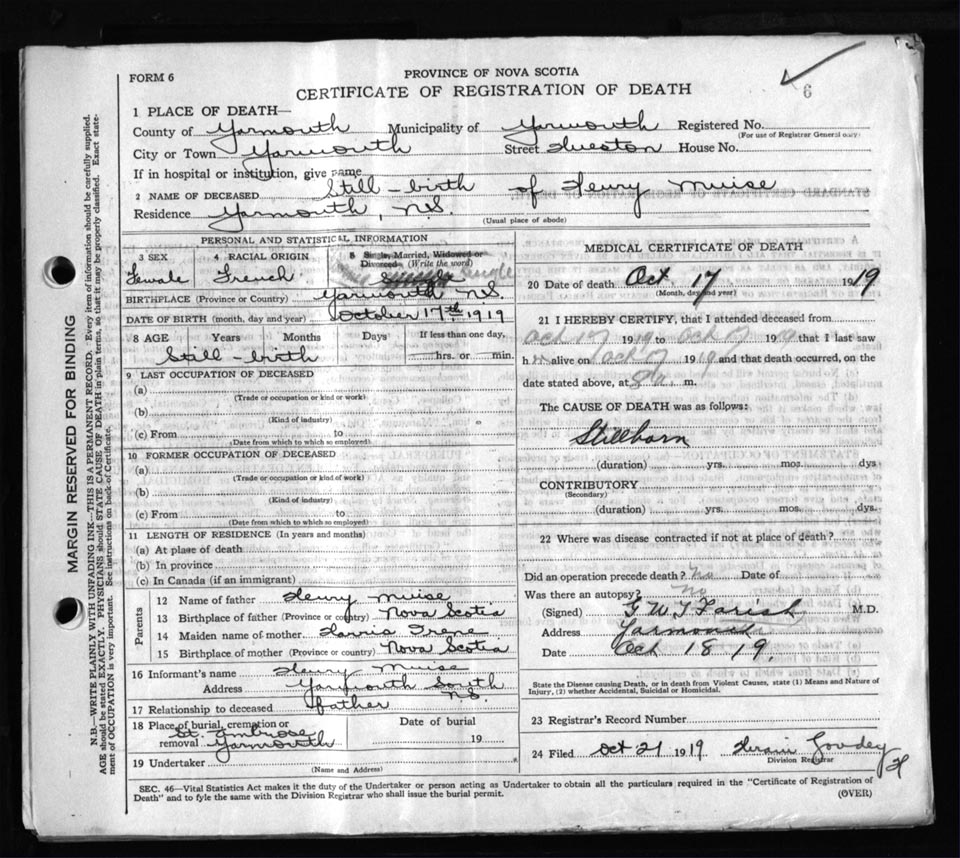 FORM 6
PROVINCE OF NOVA SCOTIA
CERTIFICATE OF REGISTRATION OF DEATH
6
1 PLACE OF DEATH—
County of Yarmouth Municipality of Yarmouth Registered No.
(For use of Registrar General only)
City or Town Yarmouth Street House No.
If in hospital or institution, give name
2 NAME OF DECEASED Still-birth of Henry Muise
Residence Yarmouth, N.S.
(Usual place of abode)
PERSONAL AND STATISTICAL INFORMATION
3 SEX
4 RACIAL ORIGIN
5 Single, Married, Widowed or Divorced (Write the word)
Female French Single
BIRTHPLACE (Province or Country) Yarmouth N.S.
DATE OF BIRTH (month, day and year) October 17th 1919
8 AGE Years Months Days If less than one day,
Still-birth hrs. or min.
9 LAST OCCUPATION OF DECEASED
(a)
(Trade or occupation or kind or work)
(b)
(Kind of industry)
(c) From to
(Date from which to which so employed)
10 FORMER OCCUPATION OF DECEASED
(a)
(Trade or occupation or kind of work)
(b)
(Kind of industry)
(c) From to
(Date from which to which so employed)
11 LENGTH OF RESIDENCE (In years and months)
(a) At place of death
(b) In province
(c) In Canada (if an immigrant)
Parents
12 Name of father Henry Muise
13 Birthplace of father (Province or country) Nova Scotia
14 Maiden name of mother
15 Birthplace of mother (Province or country) Nova Scotia
16 Informant's name Henry Muise
Address Yarmouth South N.S.
17 Relationship to deceased father
18 Place of burial, cremation or removal St. Ambrose Yarmouth
Date of burial 19
19 Undertaker
(Name and Address)
MEDICAL CERTIFICATE OF DEATH
20 Date of death Oct 17 1919
(Month, day and year)
21 I HEREBY CERTIFY, that I attended deceased from
Oct 17 1919 to Oct 17 1919 that I last saw
h alive on Oct 17 1919 and that death occurred, on the
date stated above, at m.
The CAUSE OF DEATH was as follows:
Stillborn
(duration) yrs. mos. dys
CONTRIBUTORY
(Secondary)
(duration) yrs. mos. dys.
22 Where was disease contracted if not at place of death?
Did an operation precede death? No Date of
Was there an autopsy? No
(Signed) G W T Farish M.D.
Address Yarmouth
Date Oct 18 19.
State the Disease causing Death, or in death from Violent Causes, state (1) Means and Nature of Injury, (2) whether Accidental, Suicidal or Homicidal.
23 Registrar's Record Number
24 Filed Oct 21 1919
Division Registrar
SEC. 46—Vital Statistics Act makes it the duty of the Undertaker or person acting as Undertaker to obtain all the particulars required in the "Certificate of Registration of
Death" and to fyle the same with the Division Registrar who shall issue the burial permit.
(OVER)
MARGIN RESERVED FOR BINDING
N.B.—WRITE PLAINLY WITH UNFADING INK—THIS IS A PERMANENT RECORD. Every item of information should be carefully supplied.
AGE should be stated EXACTLY. PHYSICIANS should STATE CAUSE OF DEATH in plain terms, so that it may be properly classified. Exact state-
ment of OCCUPATION is very important. See instructions on back of Certificate.